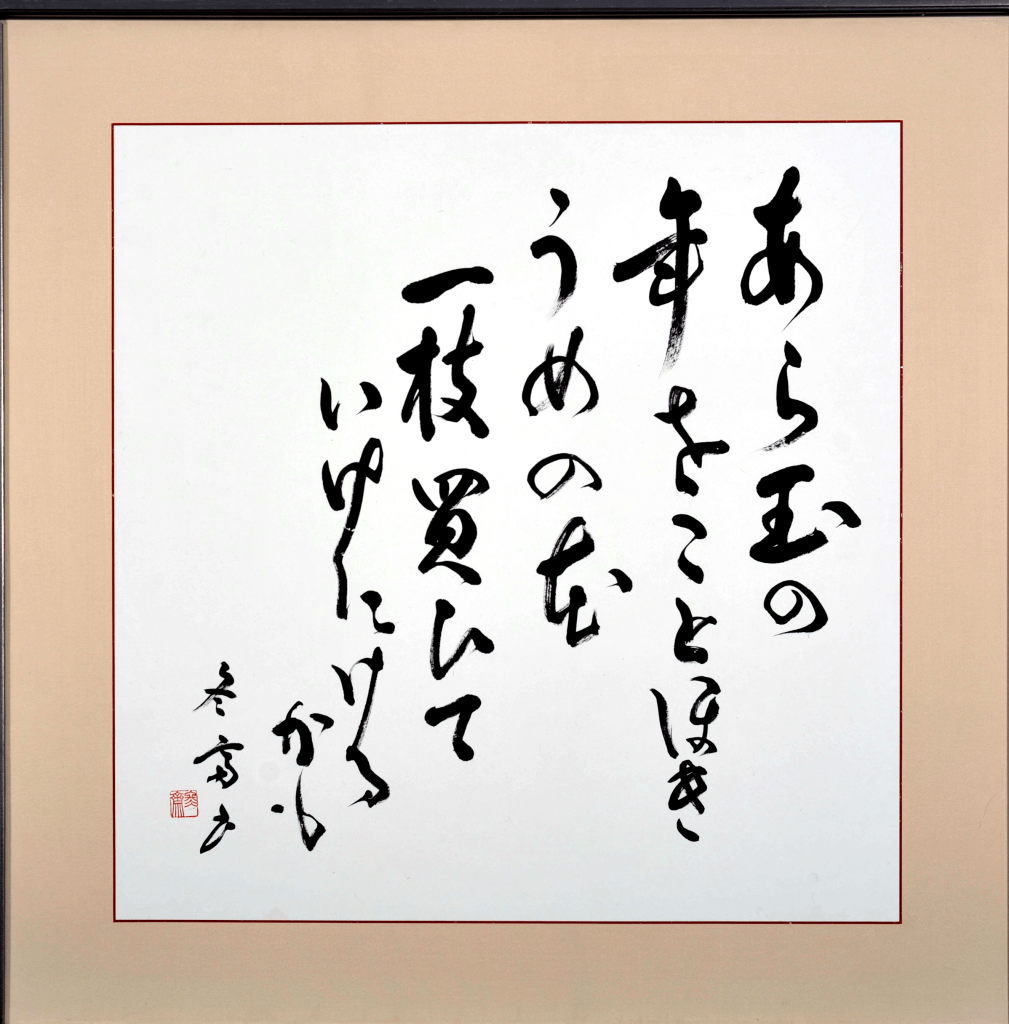 あら玉の
年をことほき
うめの花
一枝買ひて
いけにける
かも
冬